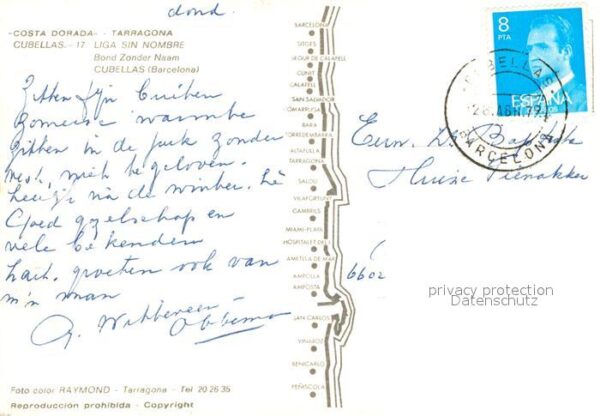 dond.
"COSTA DORADA" - TARRAGONA
CUBELLAS.- 17 LIGA SIN NOMBRE
Bond Zonder Naam
CUBELLAS (Barcelona)
Zitten fijn buiten
zomerse warmte
zitten in de zonder
vest, niet te geloven.
heerlijk na de winter. Hè
Goed gezelschap en
vele bekenden
hart. groeten ook van
m'n man
BARCELONA
SITGES
SEGUR DE CALAFELL
CUNIT
CALAFELL
SAN SALVADOR
COMARRUGA
BARA
TORREDEMBARRA
ALTAFULLA
TARRAGONA
SALOU
VILAFORTUNY
CAMBRILS
MIAMI-PLAYA
HOSPITALET DEL I.
AMETLLA DE MAR
AMPOLLA
AMPOSTA
SAN CARLOS
VINAROZ
BENICARLO
PEÑISCOLA
8
PTA
ESPAÑA
CUBELLAS
BARCELONA
Eerw.
Huize
6602
privacy protection
Datenschutz
Foto color RAYMOND - Tarragona - Tel 20.26.35
Reproducción prohibida - Copyright